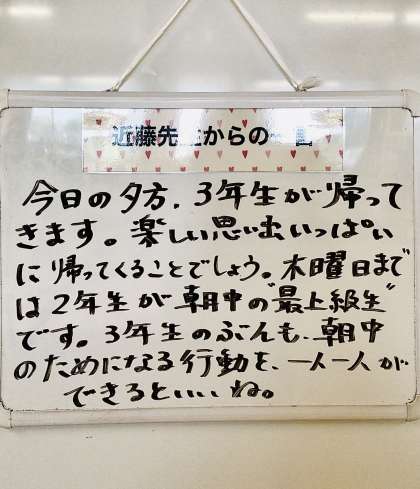 近藤先生からの一言
今日の夕方、3年生が帰って
きます。楽しい思い出いっぱい
に帰ってくることでしょう。木曜日まで
は2年生が朝中の"最上級生"
です。3年生のぶんも、朝中
のためになる行動を、一人一人が
できるといいね。